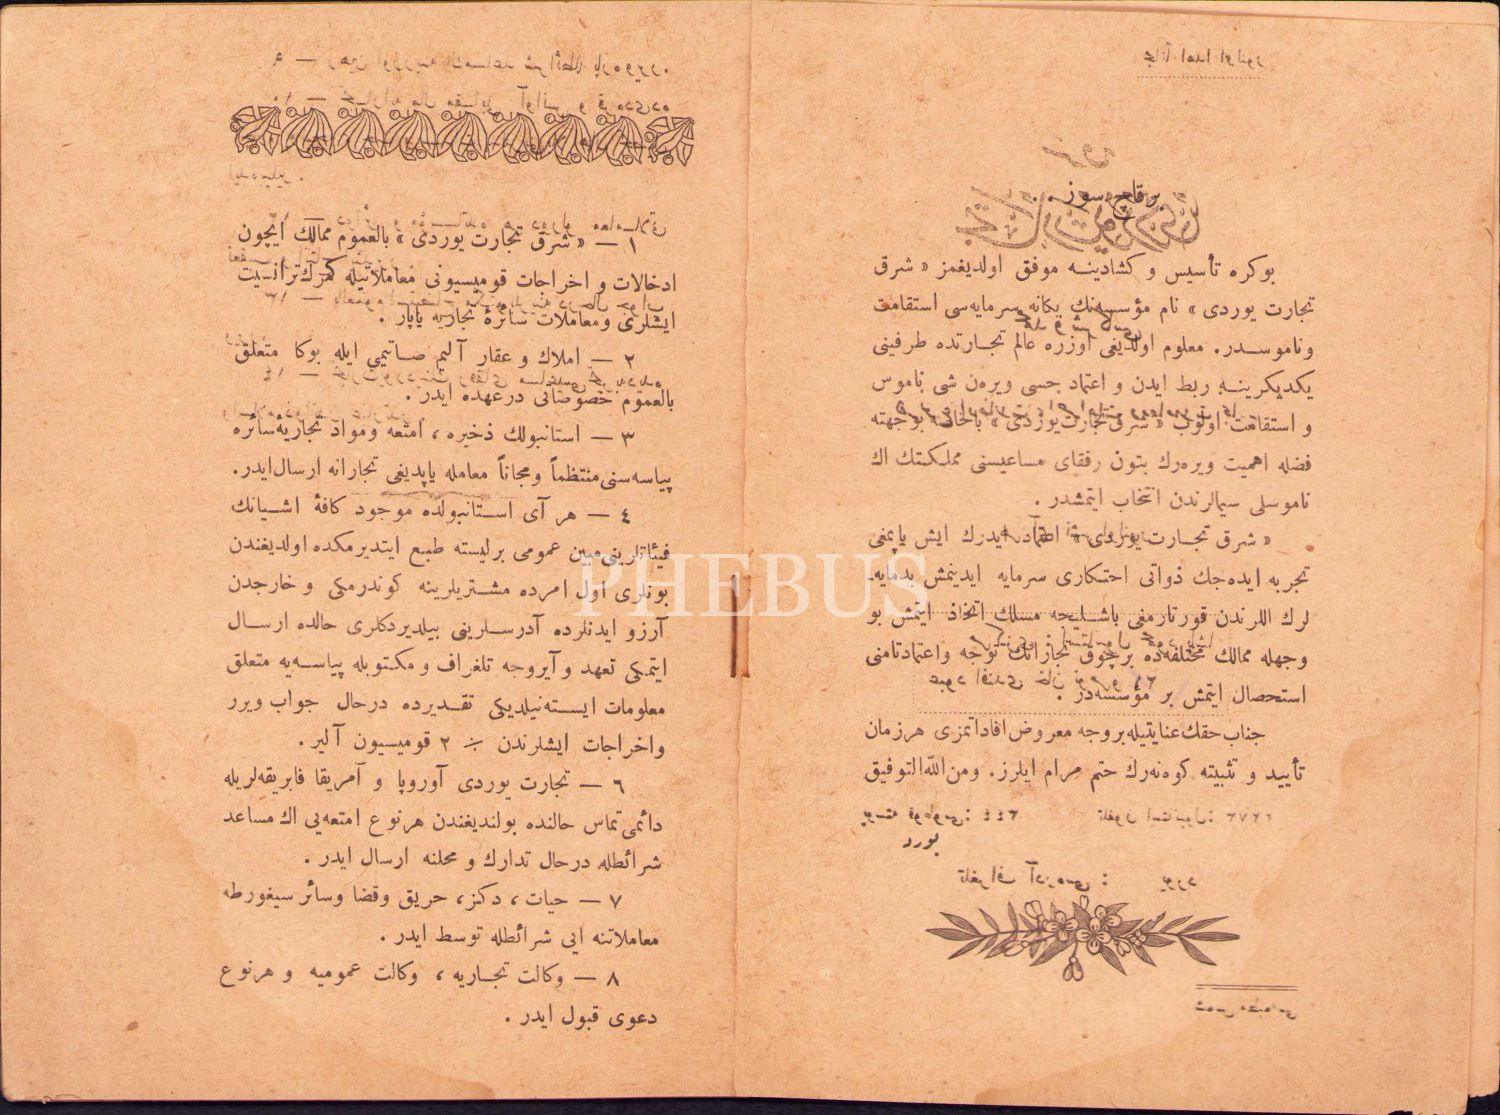 برقاچ سوز . .
بوكره تأسيس و كشادينه موفق اولديغمز « شرق
تجارت يوردى » نام مؤسسه‌نك يكانه سرمايه‌سى استقامت
وناموسدر. معلوم اولديغى اوزره عالم تجارتده طرفينى
يكديكرينه ربط ايدن و اعتماد حسى ويره‌ن شى ناموس
و استقامت اولوب « شرق تجارت يوردى » بالخاصه بوجهته
فضله اهميت ويره‌رك بتون رفقاى مساعيسنى مملكتك اك
ناموسلى سيمالرندن انتخاب ايتمشدر .
« شرق تجارت يوردى » اعتماد ايدرك ايش ياپمغى
تجربه ايده‌جك ذواتى احتكارى سرمايه ايدينمش بدمايه‌
لرك اللرندن قورتارمغى باشليجه مسلك اتخاذ ايتمش بو
وجهله ممالك مختلفه‌ده برچوق تجارانك توجه واعتمادتامنى
استحصال ايتمش بر مؤسسه‌در .
جناب حقك عنايتيله بروجه معروض افاداتمزى هرزمان
تأييد و تثبيته كوه‌نه‌رك ختم مرام ايلرز. ومن الله التوفيق
١ — « شرق تجارت يوردى » بالعموم ممالك ايچون
ادخالات و اخراجات قوميسيونى معاملاتيله كمرك ترانسيت
ايشلرى ومعاملات سائرهٔ تجاريه ياپار .
٢ — املاك و عقار آليم صاتيمي ايله بوكا متعلق
بالعموم خصوصاتى درعهده ايدر .
٣ — استانبولك ذخيره ، امتعه ومواد تجاريهٔ سائره
پياسه‌سنى منتظماً ومجاناً معامله ياپديغى تجارانه ارسال ايدر.
٤ — هر آى استانبولده موجود كافهٔ اشيانك
فيئاتلرينى مبين عمومى برليسته طبع ايتديرمكده اولديغندن
بونلرى اول امرده مشتريلرينه كوندرمكى و خارجدن
آرزو ايدنلرده آدرسلرينى بيلديردكلرى حالده ارسال
ايتمكى تعهد و آيروجه تلغراف و مكتوبله پياسه‌يه متعلق
معلومات ايسته‌نيلديكى تقديرده درحال جواب ويرر
واخراجات ايشلرندن ٪ ٢ قوميسيون آلير.
٦ — تجارت يوردى آوروپا و آمريقا فابريقه‌لريله
دائمى تماس حالنده بولنديغندن هرنوع امتعه‌يى اك مساعد
شرائطله درحال تدارك و محلنه ارسال ايدر .
٧ — حيات ، دكز ، حريق وقضا وسائر سيغورطه
معاملاتنه ايى شرائطله توسط ايدر .
٨ — وكالت تجاريه ، وكالت عموميه و هرنوع
دعوى قبول ايدر .
PHEBUS